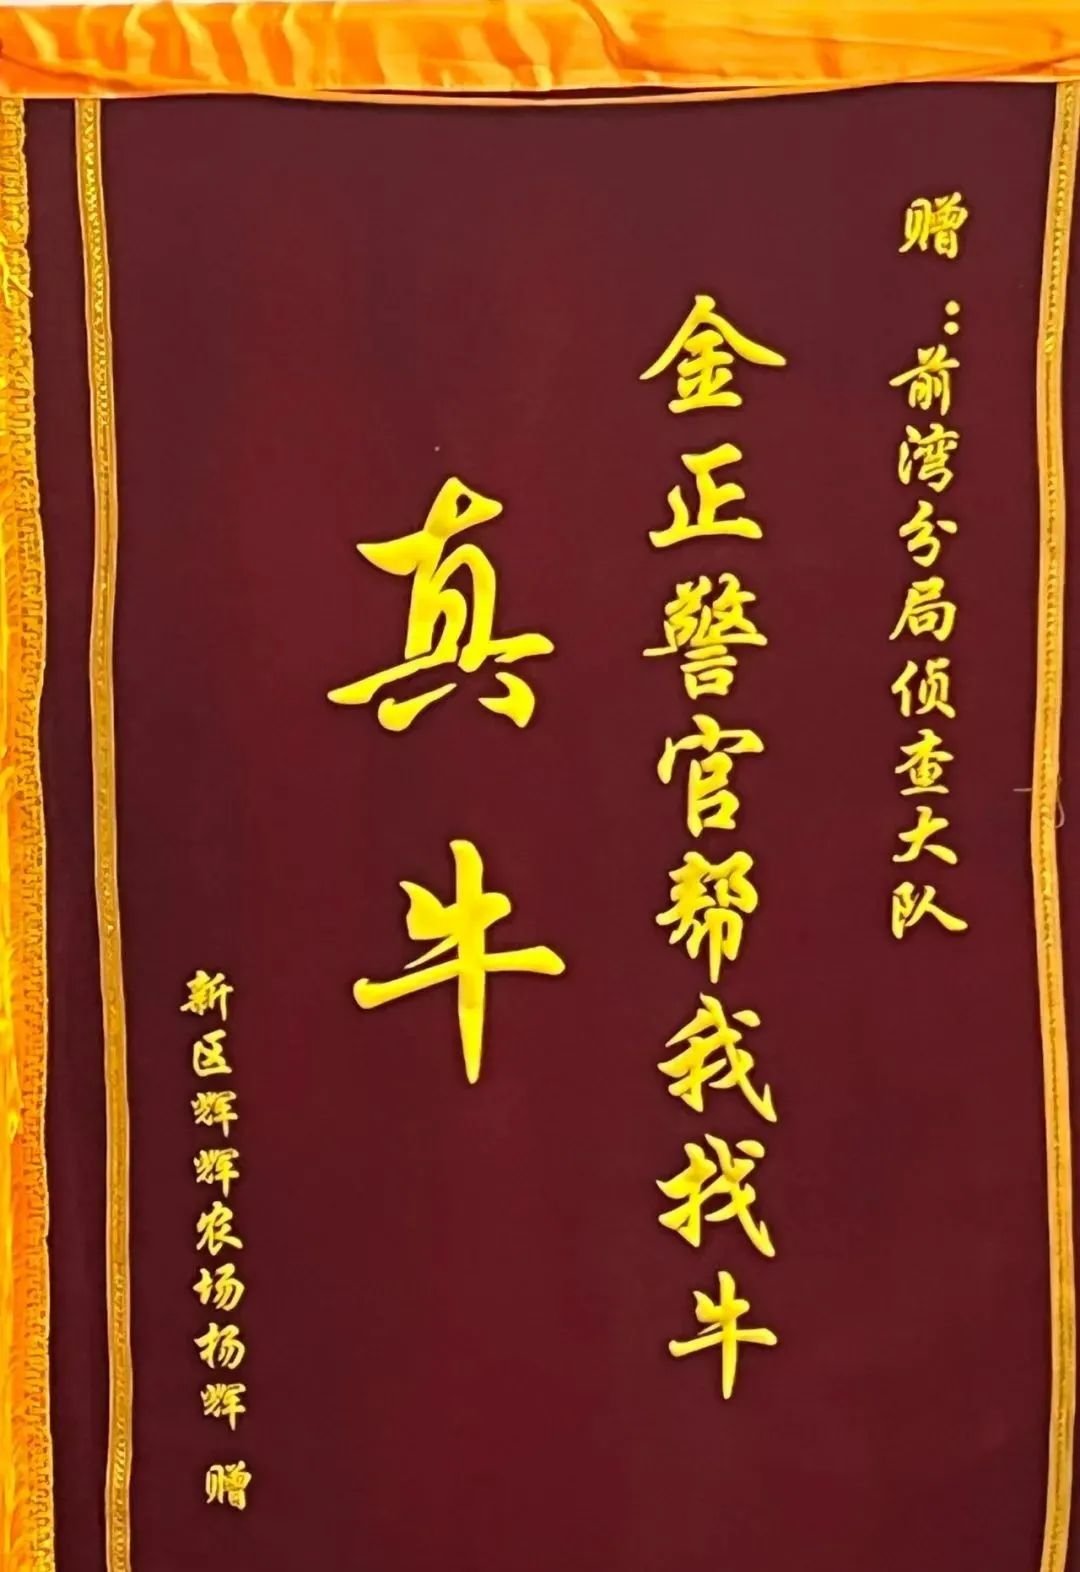 赠：前湾分局侦查大队
金正警官帮我找牛
真牛
新区辉辉农场扬辉 赠